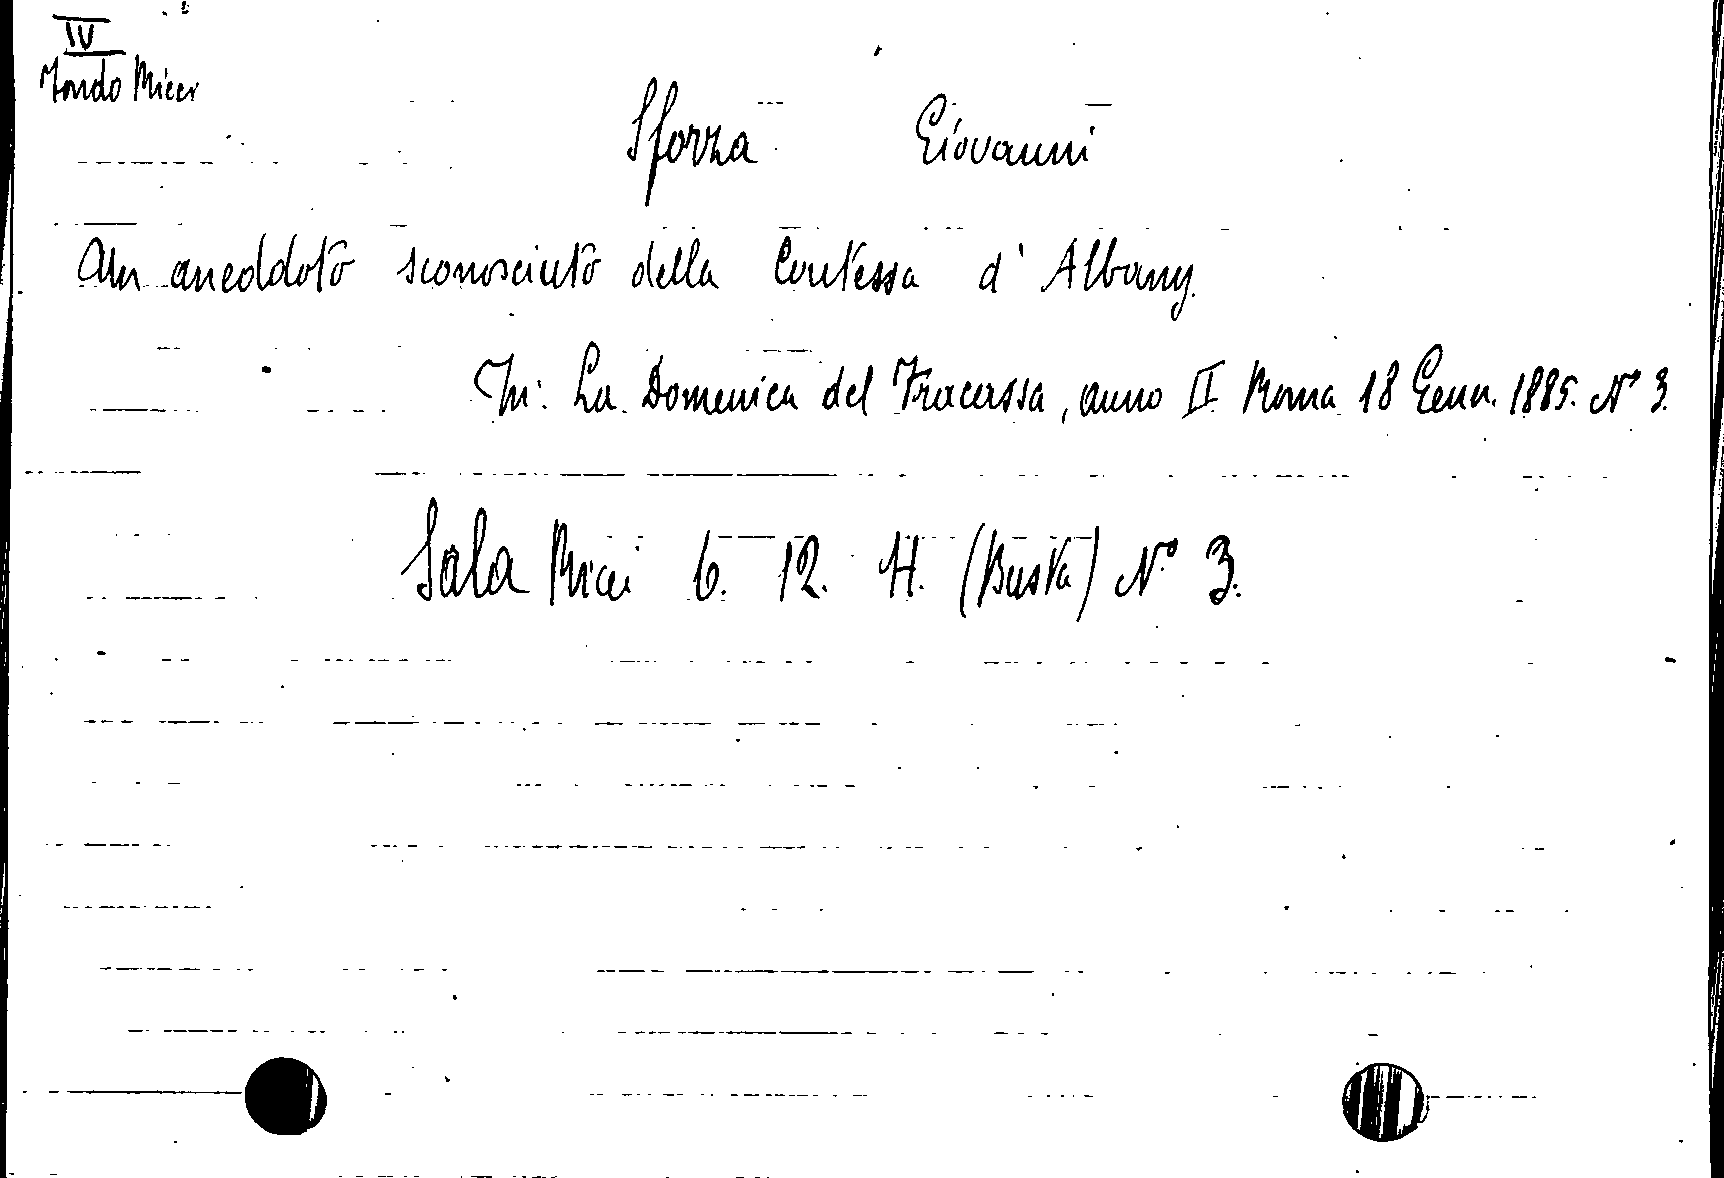 IV
Fondo Ricci
Sforza Giovanni
Un aneddoto sconosciuto della Contessa d'Albany.
In: La Domenica del Fracassa, anno II Roma 18 Genn. 1885. N° 3.
Sala Ricci 6. 12. H. (Busta) N° 3.